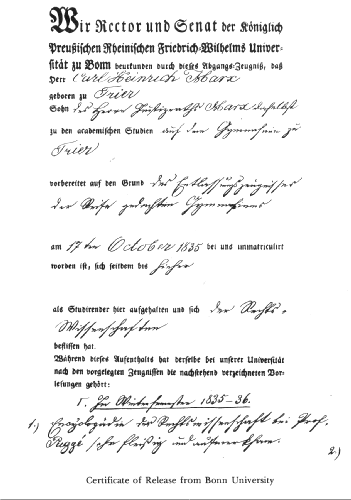 Wir Rector und Senat der Königlich
Preußischen Rheinischen Friedrich-Wilhelms Univer-
sität zu Bonn beurkunden durch dieses Abgangs-Zeugniß, daß
Herr Carl Heinrich Marx
geboren zu Trier
Sohn des Herrn Justizraths Marx daselbst
zu den academischen Studien auf dem Gymnasium zu
Trier
vorbereitet auf den Grund des Entlassungszeugnisses
der Reife gedachten Gymnasiums
am 17ten October 1835 bei uns immatriculirt
worden ist, sich seitdem bis hieher
als Studirender hier aufgehalten und sich der Rechts-
Wissenschaften
beflissen hat.
Während dieses Aufenthalts hat derselbe bei unserer Universität
nach den vorgelegten Zeugnissen die nachstehend verzeichneten Vor-
lesungen gehört:
I. Im Wintersemester 1835-36.
1.) Encyclopädie der Rechtswissenschaft bei Prof.
Puggé sehr fleißig und aufmerksam.
2.)
Certificate of Release from Bonn University